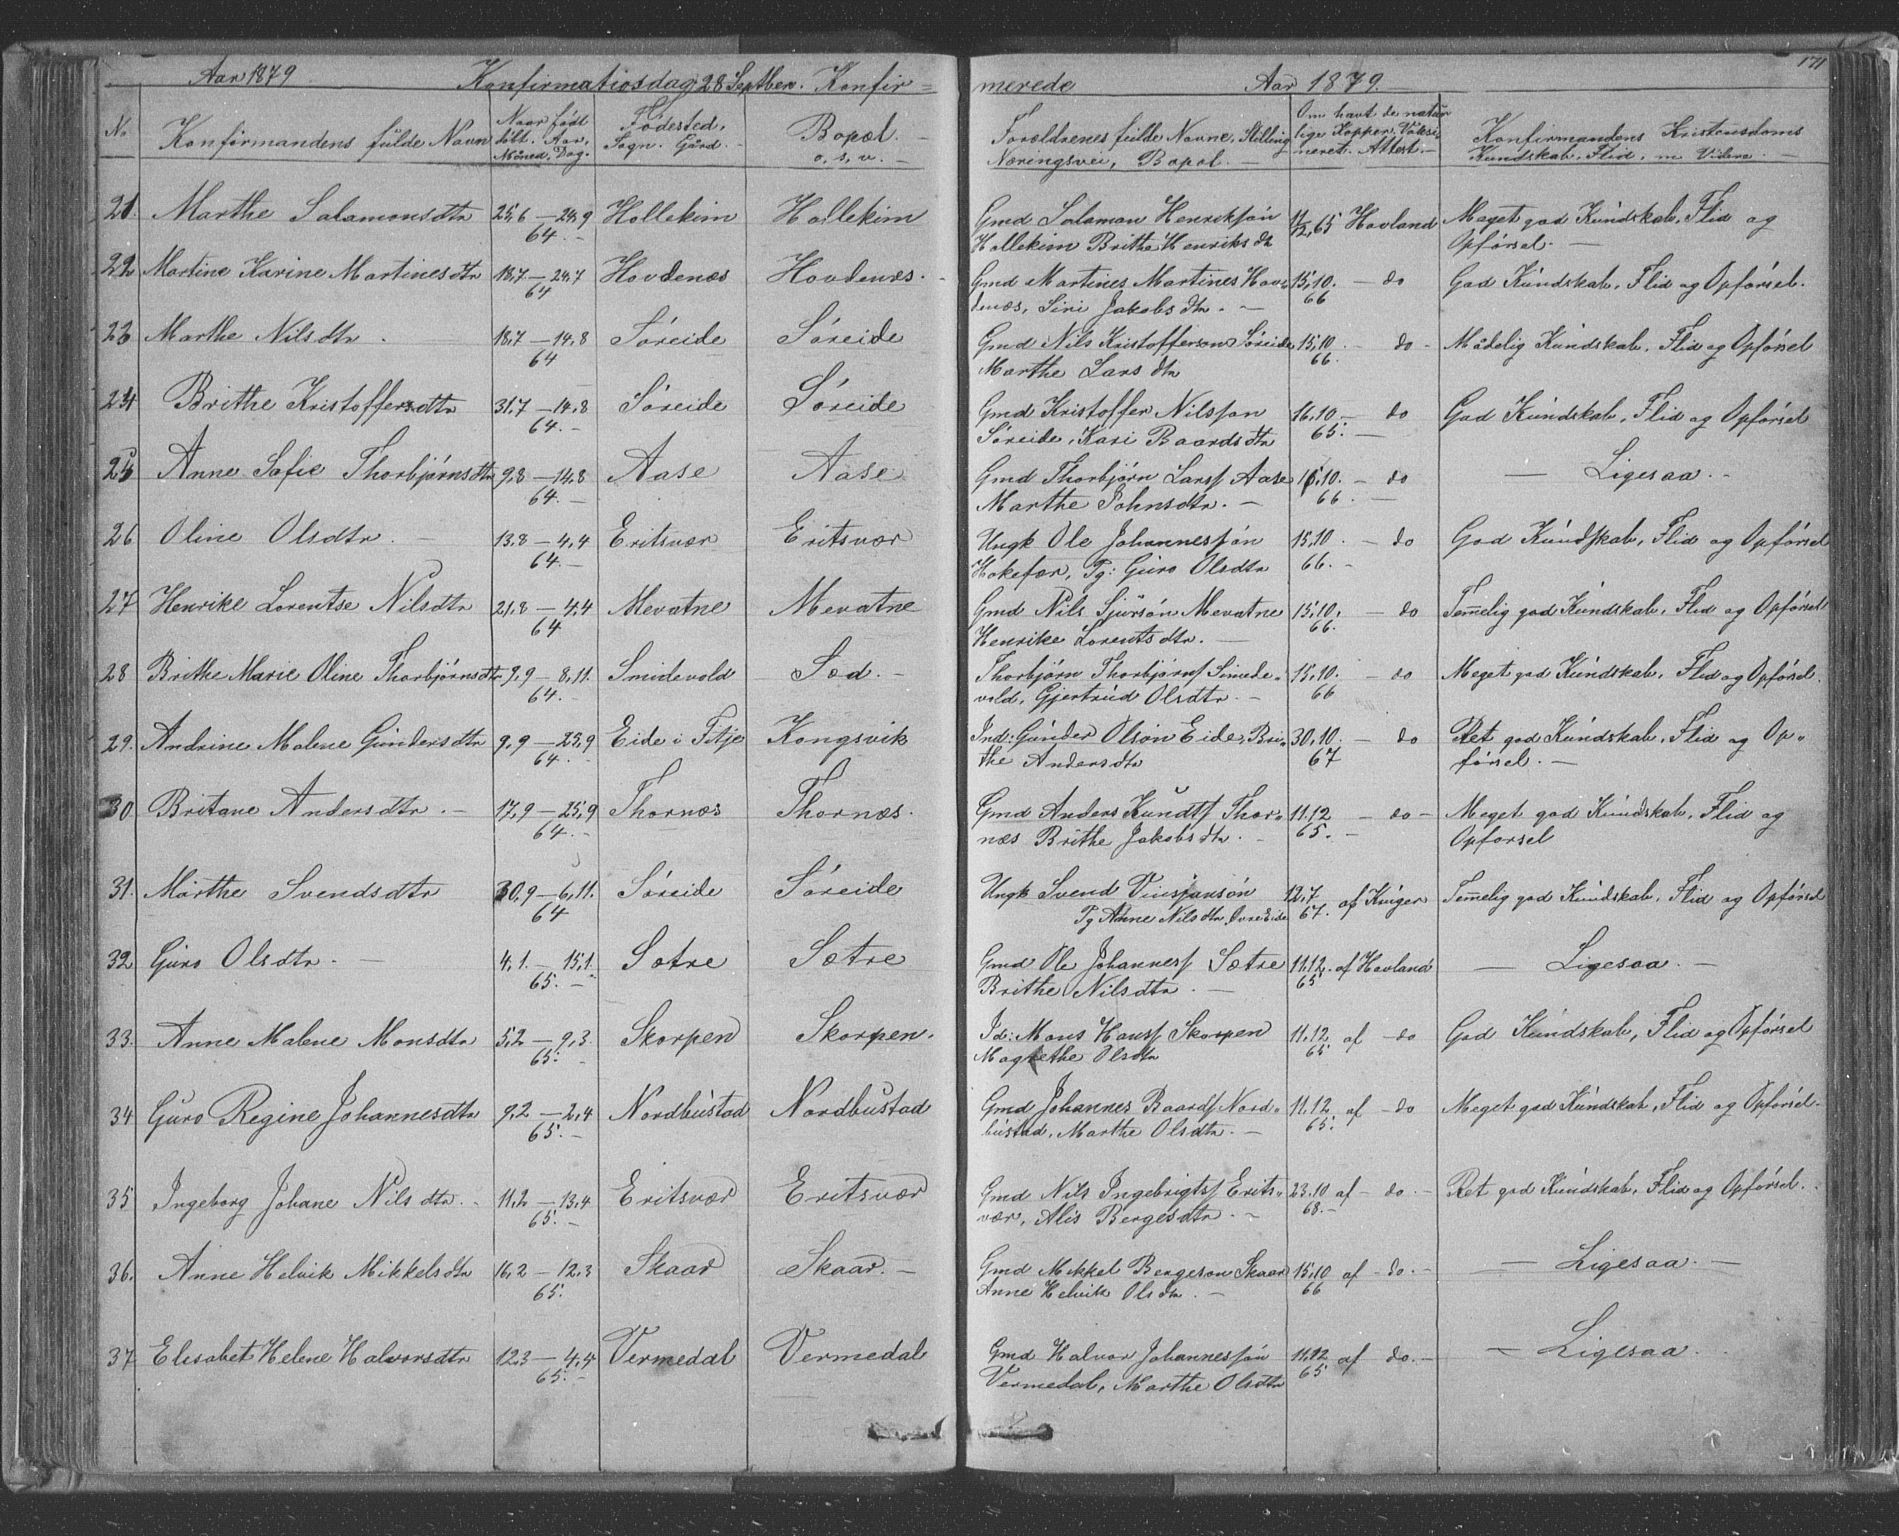 Aar 1879 Konfirmatiosdag 28 Septber. Konfir=
merede Aar 1879. 171
No Konfirmandens fulde Navn Naar født døbt. Aar, Måned, Dag. Fødested, Sogn. Gård. Bopæl. o, s, v. Forældrenes fulde Navne, Stilling Næringsvei, Bopæl. Om havt de naturlige Kopper, Vaksineret. Attest. Konfirmandens Kristensdoms Kundskab, Flid, m Videre
21. Marthe Salamonsdtr 25,6 — 24,9 Hollekim Hollekim Gmd Salamon Henriksøn 11/2,65 Havland Meget god Kundskab, Flid og
64. Hollekim Brithe Henriksdtr Opførsel.
22 Martine Karine Martinesdtr 18,7 — 24,7 Hovdenæs Hovdenæs. Gmd Martines Martines Hov= 15,10. — do God Kundskab, Flid og Opførsel.
64 denæs, Siri Jakobsdtr. 66
23 Marthe Nilsdtr 18,7 — 14,8 Søreide Søreide Gmd Nils Kristofferson Søreide 15,10 — do Mådelig Kundskab, Flid og Opførsel
64 Marthe Larsdtr 66.
24 Brithe Kristoffersdtr 31,7 — 14,8 Søreide Søreide Gmd Kristoffer Nilssøn 16,10. — do God Kundskab, Flid og Opførsel
64. Søreide, Kari Baardsdtr 65.
25 Anne Sofie Thorbjørnsdtr 9,8 — 14,8 Aase Aase Gmd Thorbjørn Larss Aase 15,10. — do — Ligesaa. -
64. Marthe Johnsdtr. 66.
26 Oline Olsdtr. 13,8 — 4,4 Eritsvær Eritsvær Ungk Ole Johannessøn 15,10. — do God Kundskab, Flid og Opførsel
64. Hokefær, Pg: Guro Olsdtr 66.
27 Henrike Lorentse Nilsdtr 21,8 — 4,4 Mevatne Mevatne Gmd Nils Sjursøn Mevatne 15,10. — do Temelig god Kundskab, Flid og Opførsel
64 Henrike Lorentsdtr. 66.
28 Brithe Marie Oline Thorbjørnsdtr 9,9 — 8,11. Smidevold Sød. Thorbjørn Thorbjørns Smede= 15,10. — do Meget god Kundskab, Flid og Opførsel.
64. vold, Gjertrud Olsdtr. 66
29. Andrine Malene Gundersdtr 9,9 — 23,9 Eide i Fitje Kongsvik Ind: Gunder Olson Eide, Bri= 30,10. — do Ret god Kundskab, Flid og Op=
64. the Andersdtr 67 førsel.
30 Britane Andersdtr. 17,9 — 25,9 Thornæs Thornæs. Gmd Anders Kundts Thor= 11,12 — do Meget god Kundskab, Flid og
64. næs Brithe Jakobsdtr. 65. Opførsel
31. Marthe Svendsdtr 30,9 — 6,11. Søreide Søreide Ungk Svend Vinsjansøn 12,7 af Kinger Temelig god Kundskab, Flid og Opførsel
64 Pg Anne Nilsdtr Øvreeide 67.
32 Guro Olsdtr. 4,1. — 15,1. Sætre Sætre Gmd Ole Johanness Sætre 11,12. af Havland — Ligesaa. —
65. Brithe Nilsdtr. 65
33. Anne Malene Monsdtr 5,2 — 9,3. Skorpen Skorpen. Id: Mons Hanss Skorpen 11,12 af - do God Kundskab, Flid og Opførsel
65. Magrethe Olsdtr 65
34 Guro Regine Johannesdtr 9,2 — 2,4 Nordbustad Nordbustad Gmd Johannes Baards Nord= 11,12 af - do Meget god Kundskab, Flid og Opførsel.
65. bustad, Marthe Olsdtr. 65.
35 Ingeborg Johane Nilsdtr. 11,2 — 13,4 Eritsvær Eritsvær Gmd Nils Ingebrigts Erits= 23,10 af - do. Ret god Kundskab, Flid og Opførsel.
65. vær, Alis Bergesdtr. 68.
36. Anne Helvik Mikkelsdtr 16,2 — 12,3 Skaar Skaar. Gmd Mikkel Bergeson Skaar 15,10 af - do. — Ligesaa. —
65. Anne Helvik Olsdtr. 66
37 Elisabet Helene Halvorsdtr 12,3 — 4,4 Vermedal Vermedal Gmd Halvor Johannessøn 11,12 af do. — Ligesaa.
65. Vermedal, Marthe Olsdtr 65